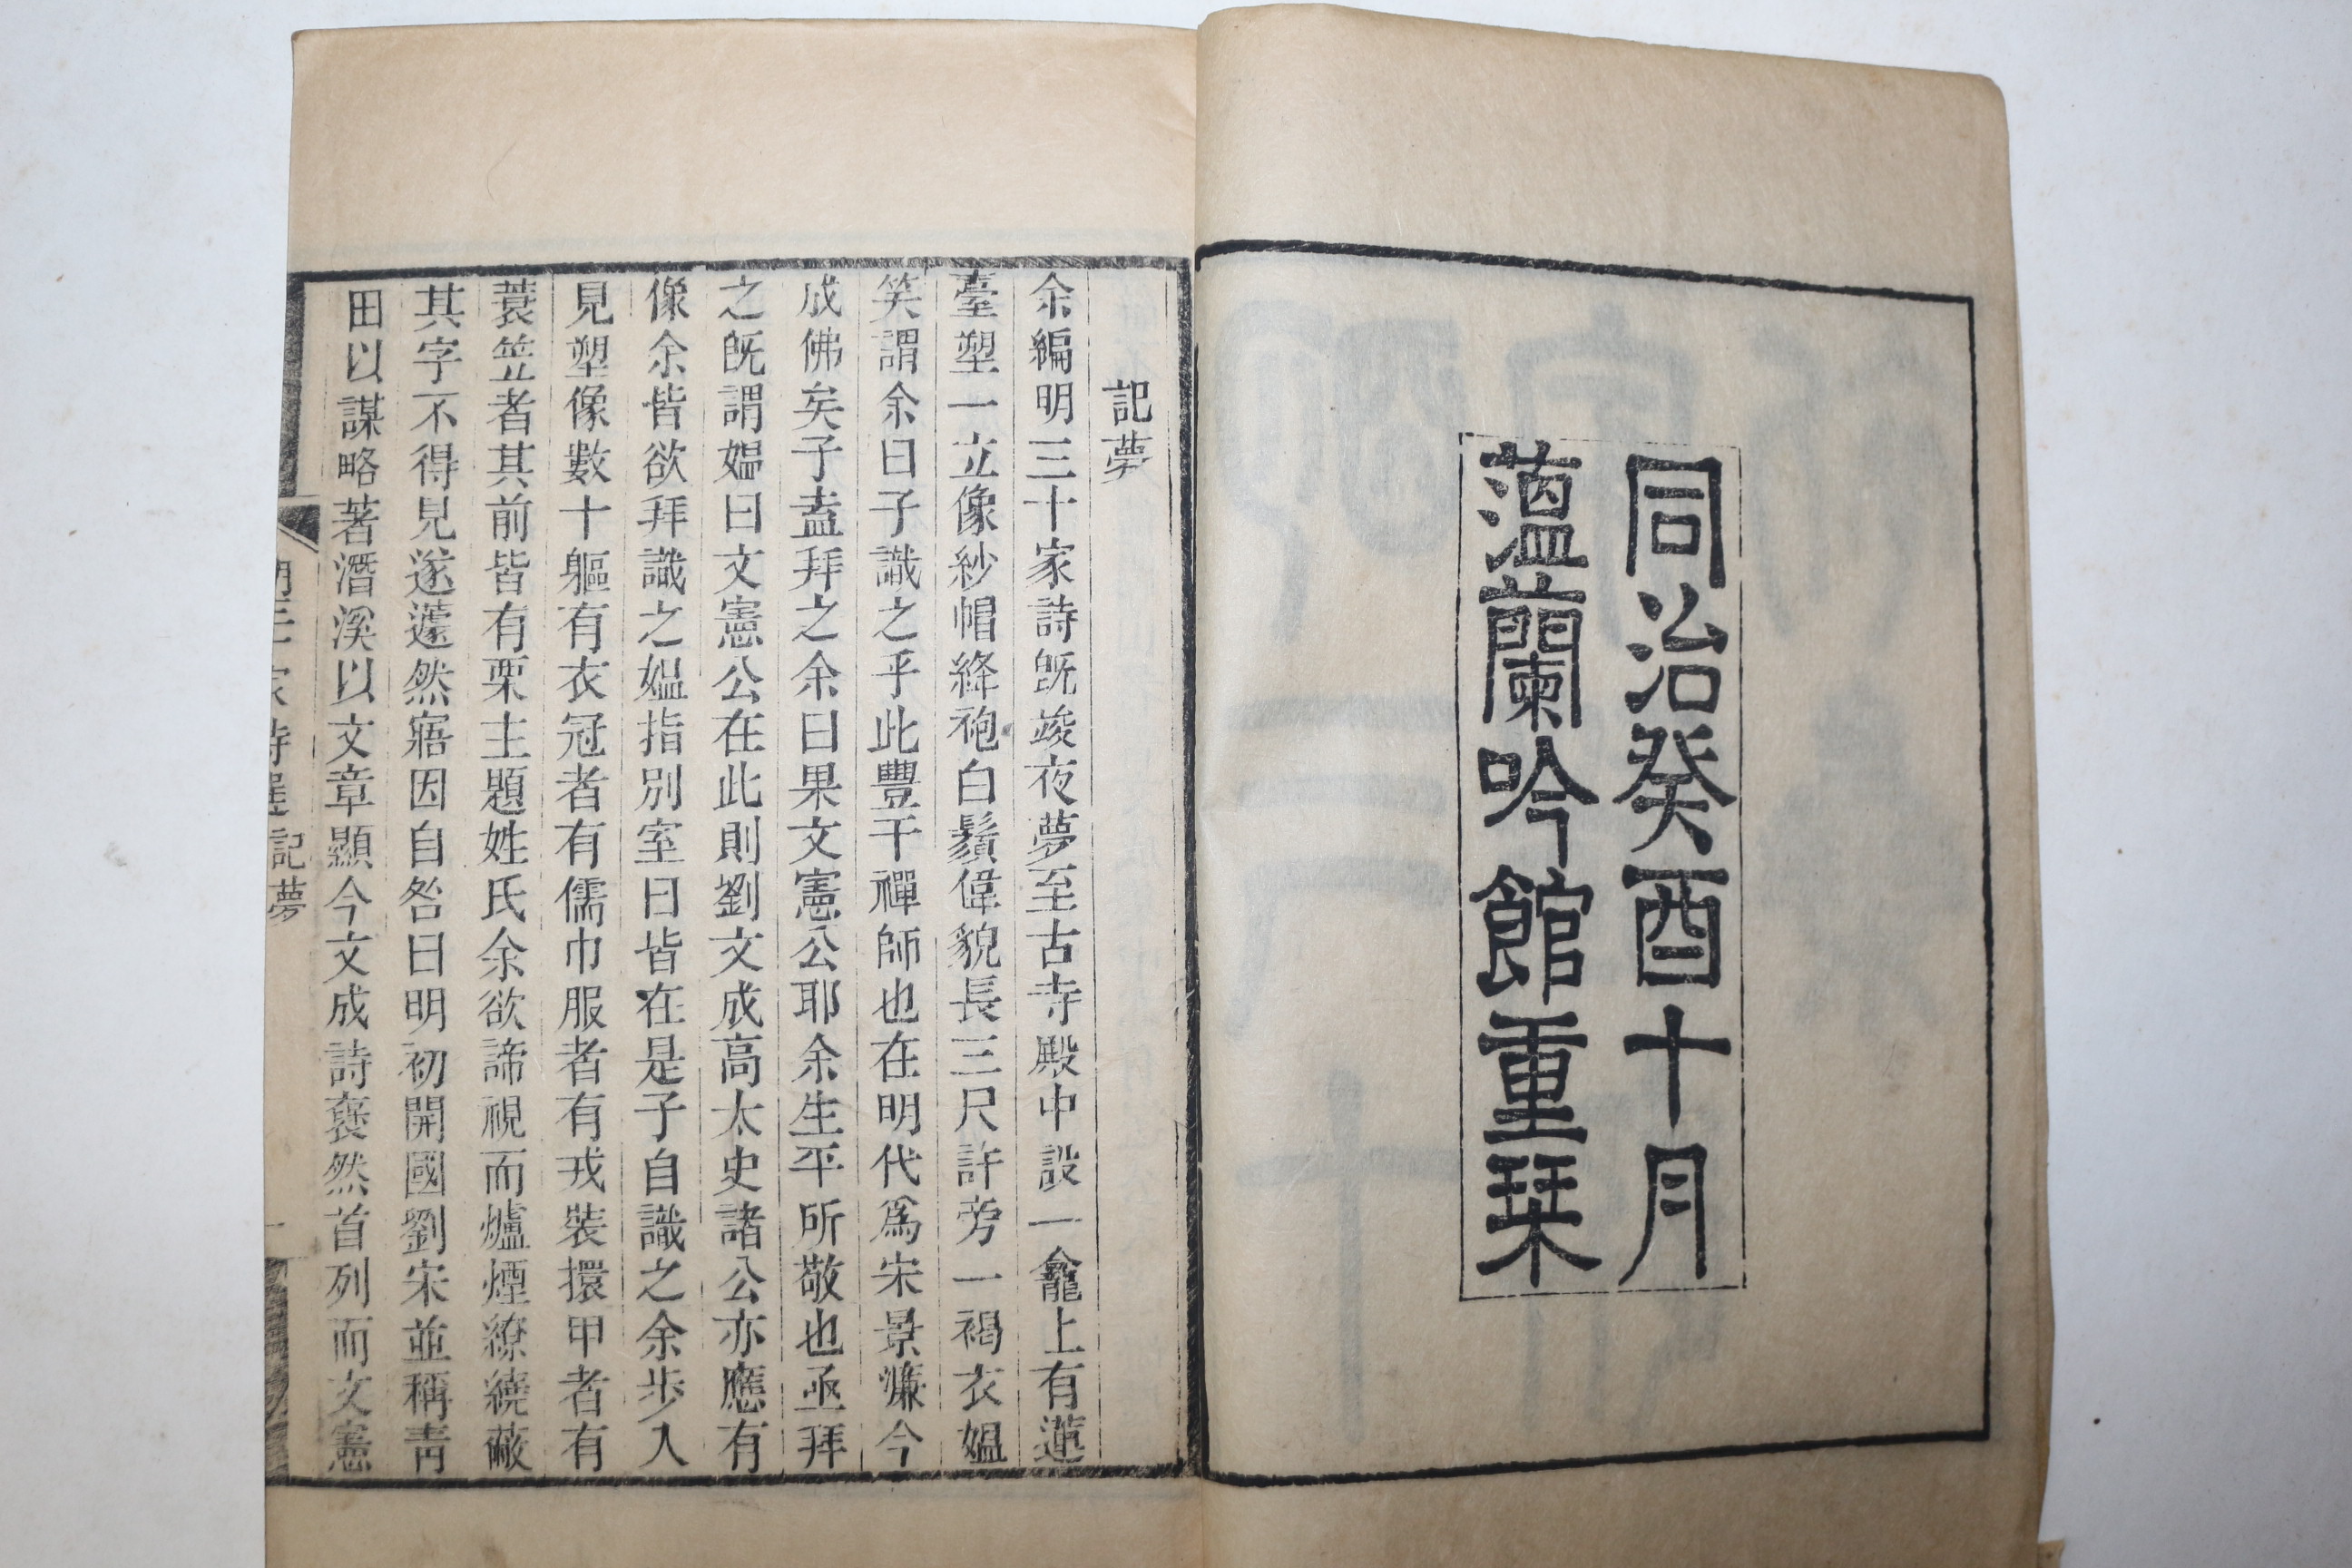 同治癸酉十月
薀蘭吟館重栞
記夢
余編明三十家詩旣竣夜夢至古寺殿中設一龕上有蓮
臺塑一立像紗帽絳袍白鬚偉貌長三尺許旁一褐衣媼
笑謂余曰子識之乎此豐干禪師也在明代爲宋景濂今
成佛矣子盍拜之余曰果文憲公耶余生平所敬也亟拜
之旣謂媼曰文憲公在此則劉文成高太史諸公亦應有
像余皆欲拜識之媼指別室曰皆在是子自識之余步入
見塑像數十軀有衣冠者有儒巾服者有戎裝擐甲者有
蓑笠者其前皆有栗主題姓氏余欲諦視而爐煙繚繞蔽
其字不得見遂蘧然寤因自咎曰明初開國劉宋並稱靑
田以謀略著潛溪以文章顯今文成詩裒然首列而文憲
明三十家詩選 記夢 一